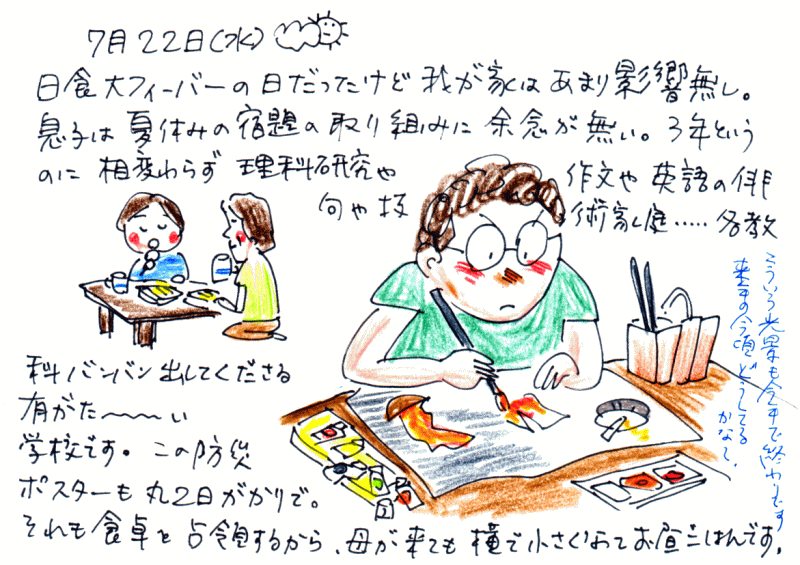 7月22日(水)
日食大フィーバーの日だったけど我が家はあまり影響無し。
息子は夏休みの宿題の取り組みに余念が無い。3年という
のに相変わらず理科研究や作文や英語の俳
句や技術家庭‥‥‥各教
科バンバン出してくださる
有がた〜〜〜い
学校です。この防災
ポスターも丸2日がかりで。
それも食卓を占領するから、母が来ても横で小さくなってお昼ごはんです。
こういう光景も今年で終わりです
来年の今頃どうしてる
かなぁ、